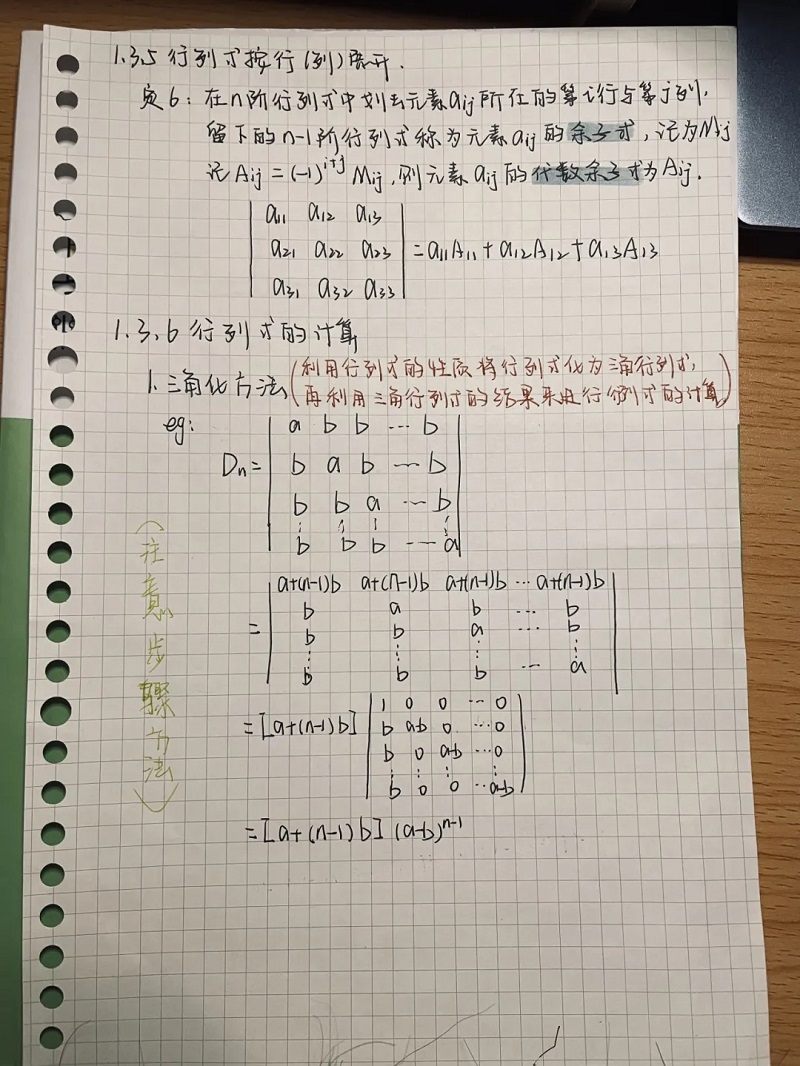 1.3.5 行列式按行(列)展开.
定6: 在n阶行列式中划去元素aij所在的第i行与第j列,
留下的n-1阶行列式称为元素aij的余子式, 记为Mij
记Aij=(-1)^{i+j} Mij, 则元素aij的代数余子式为Aij.
a11 a12 a13
a21 a22 a23 =a11A11+a12A12+a13A13
a31 a32 a33
1.3.6 行列式的计算
1.三角化方法(利用行列式的性质将行列式化为三角行列式,
再利用三角行列式的结果来进行行列式的计算)
eg:
a b b … b
Dn= b a b … b
b b a … b
⋮ ⋮ ⋮ ⋮
b b b … a
(注意步骤方法)
a+(n-1)b a+(n-1)b a+(n-1)b … a+(n-1)b
b a b … b
= b b a … b
⋮ ⋮ ⋮ ⋮
b b b … a
1 0 0 … 0
=[a+(n-1)b] b a-b 0 … 0
b 0 a-b … 0
⋮ ⋮ ⋮ ⋮
b 0 0 … a-b
=[a+(n-1)b] (a-b)^{n-1}